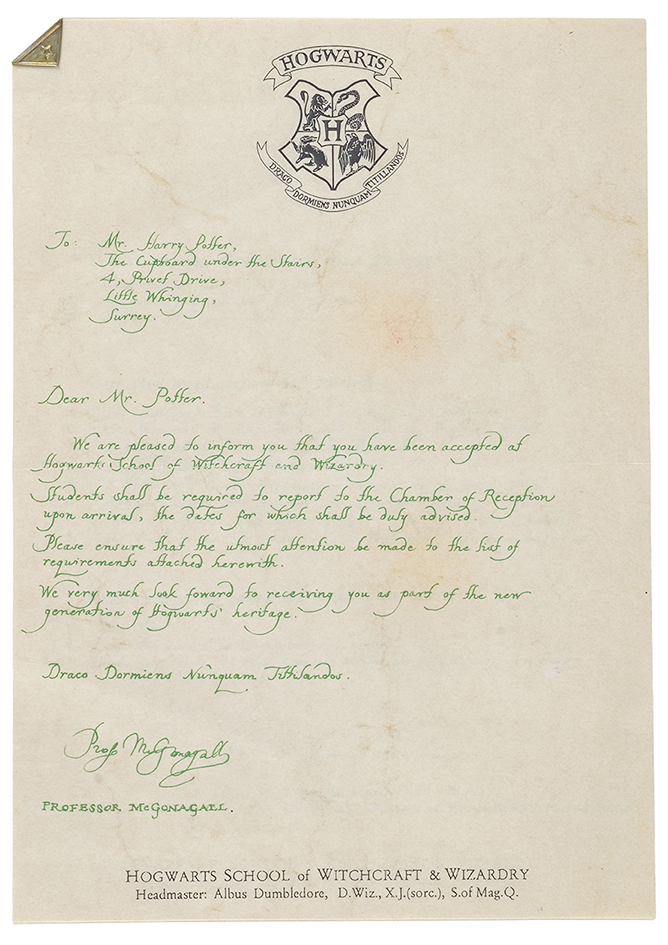 HOGWARTS
H
DRACO DORMIENS NUNQUAM TITILLANDUS
To: Mr. Harry Potter,
The Cupboard under the Stairs,
4, Privet Drive,
Little Whinging,
Surrey.
Dear Mr. Potter.
We are pleased to inform you that you have been accepted at
Hogwarts School of Witchcraft and Wizardry.
Students shall be required to report to the Chamber of Reception
upon arrival, the dates for which shall be duly advised.
Please ensure that the utmost attention be made to the list of
requirements attached herewith.
We very much look foward to receiving you as part of the new
generation of Hogwarts' heritage.
Draco Dormiens Nunquam Tittilandos.
Prof McGonagall
PROFESSOR McGONAGALL.
HOGWARTS SCHOOL of WITCHCRAFT & WIZARDRY
Headmaster: Albus Dumbledore, D.Wiz., X.J.(sorc.), S.of Mag.Q.